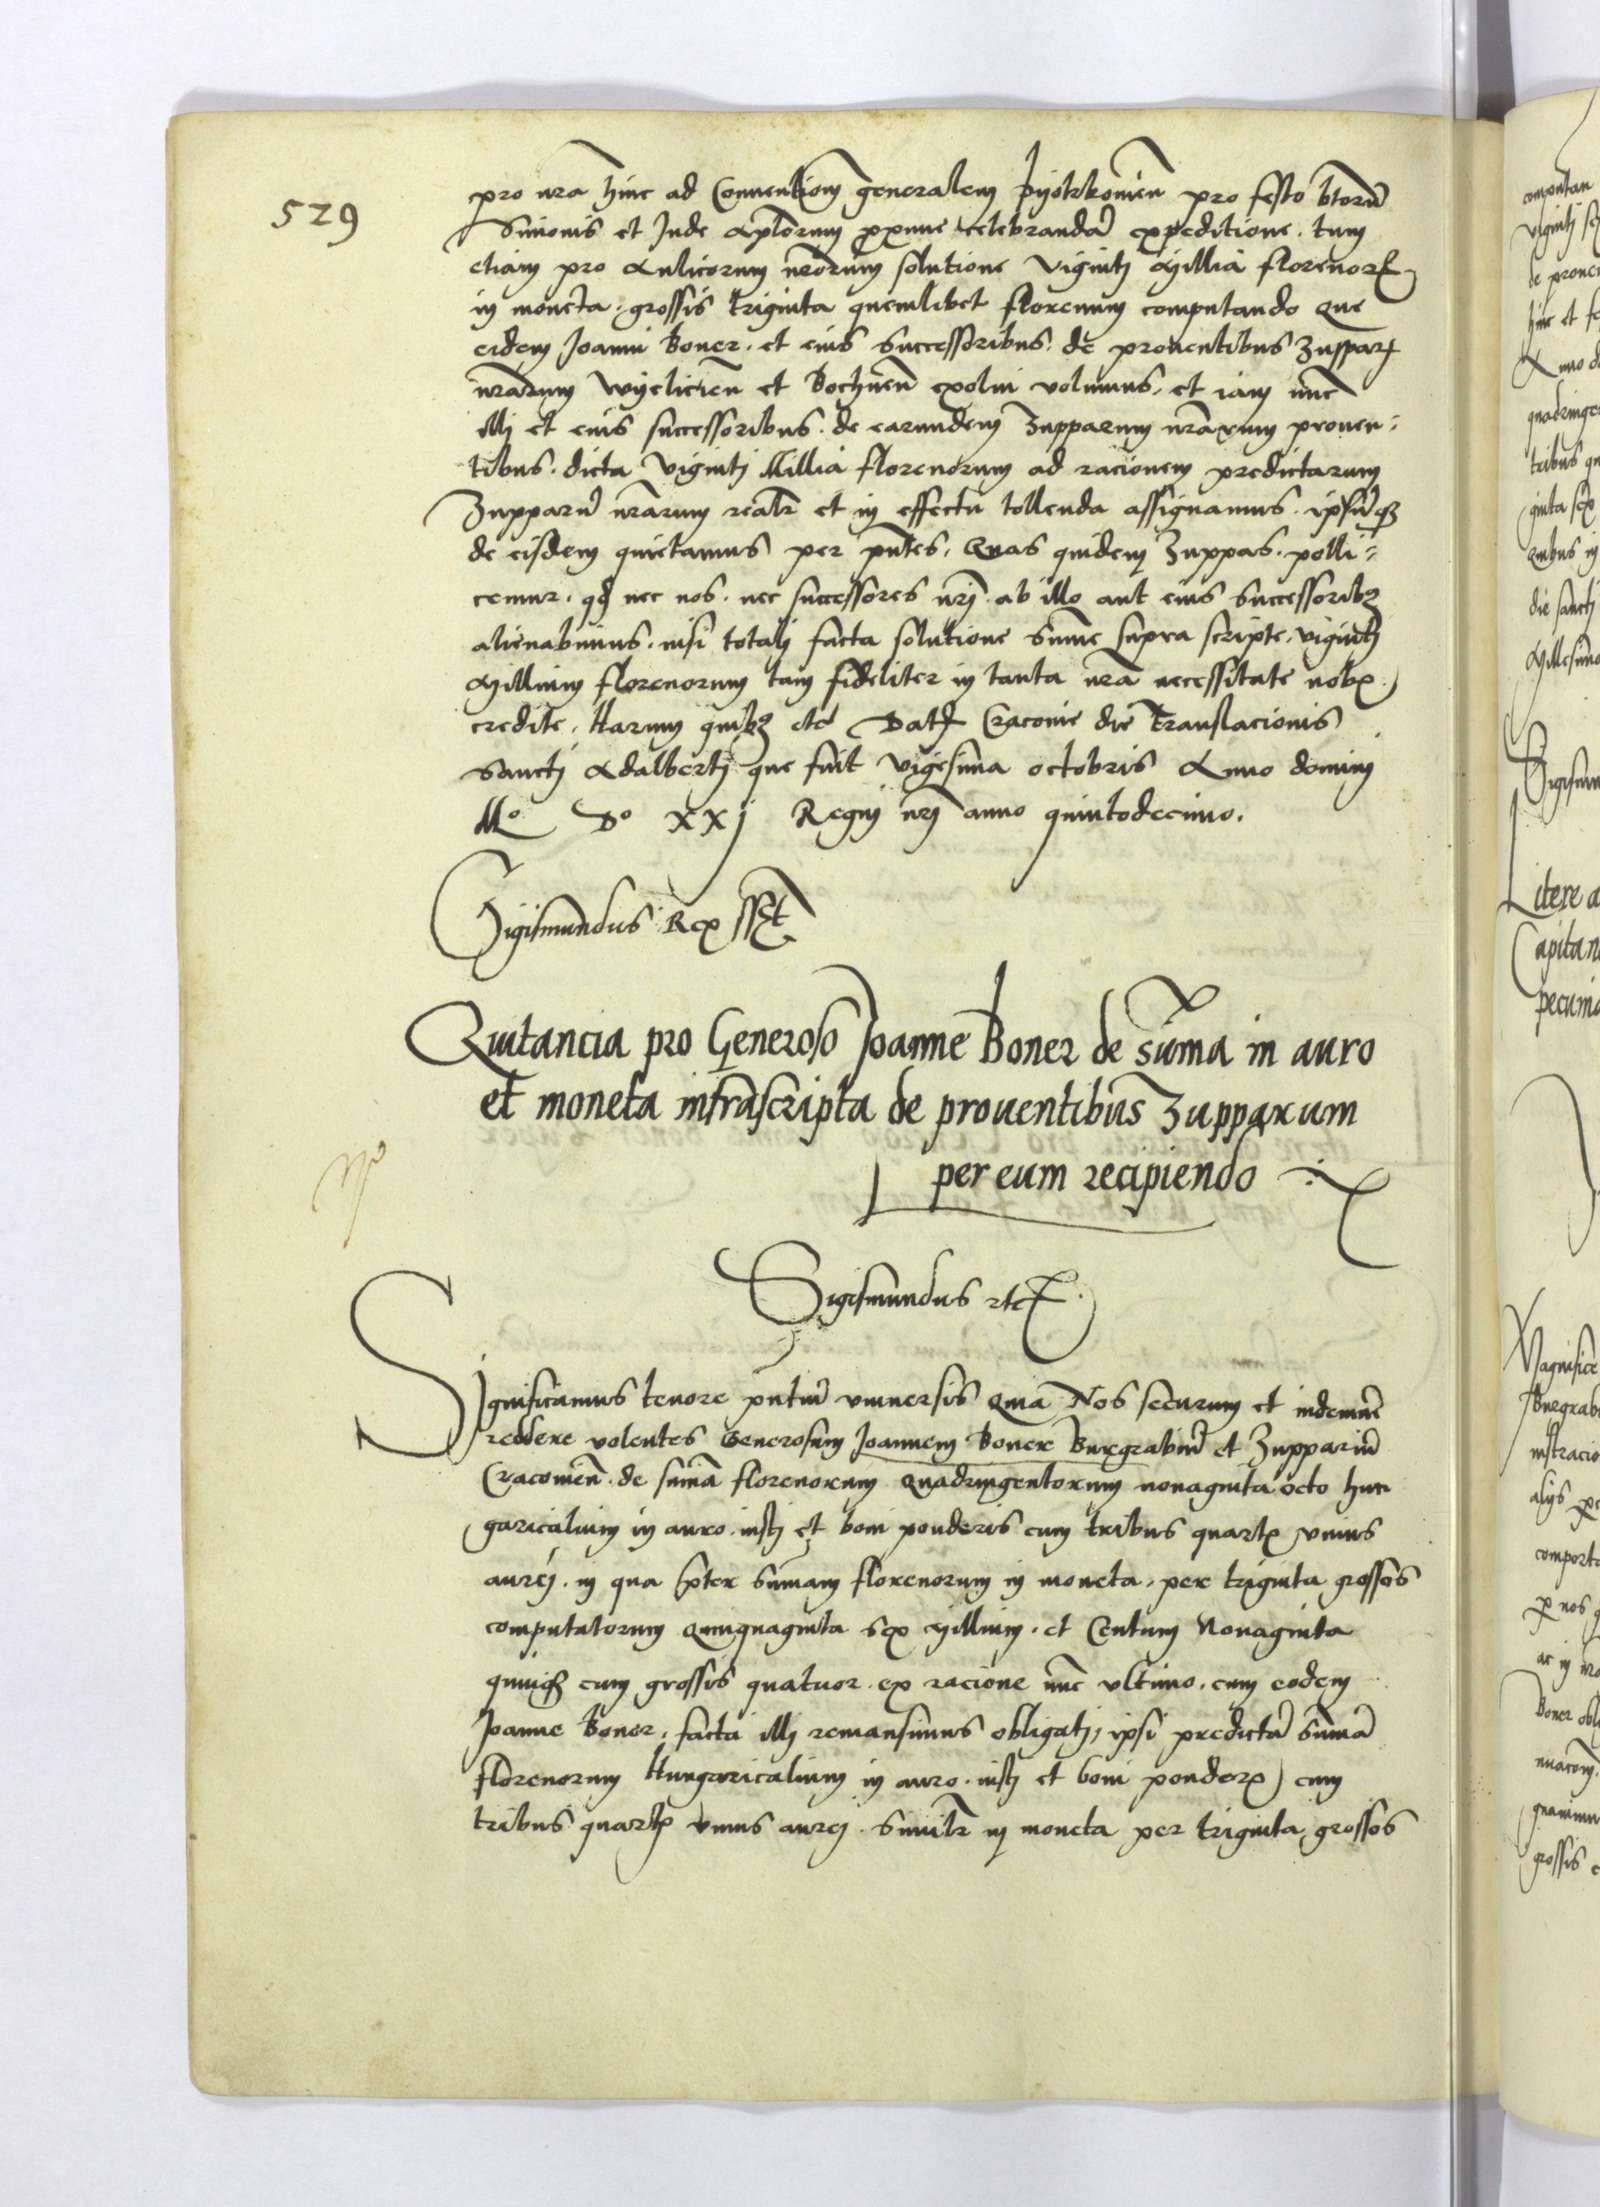 529
pro nra hinc ad Conventionem generalem Pyotrkovien pro festo btorum
Simonis et Jude aplorum proxime celebrandam expeditione. tum
etiam pro Aulicorum nrorum solutione Viginti Millia florenor
in moneta. grossis triginta quemlibet florenum computando que
eidem Joanni Boner. et eius successoribus. de proventibus Zuppar
nrarum Wyeliczien et Bochnen exolui volumus. et iam nunc
illi et eius successoribus. de earundem Zupparum nrarum proven-
tibus. dicta Viginti Millia florenorum ad racionem predictarum
Zuppar nrarum realr et in effectu tollenda assignamus. ipsumqz
de eisdem quietamus per pntes. Quas quidem Zuppas. polli=
cemur. qd nec nos. nec successores nri. ab illo aut eius successoribz
alienabimus. nisi totali facta solutione summe supra scripte. viginti
Millium florenorum tam fideliter in tanta nra necessitate nobis
credite. Harum quibz etc Dat Cracovie die translacionis
Sancti Adalberti que fuit Vigesima octobris Anno domini
Mo Do XXj Regni nri anno quintodecimo.
Sigismundus Rex sst
Quitancia pro Generoso Joanne Boner de summa in auro
et moneta infrascripta de proventibus Zupparum
per eum recipiendo
Sigismundus etc
Significamus tenore pntium vniuersis Quia Nos securum et indemnem
reddere volentes Generosum Joannem Boner Burgrabium et Zupparium
Cracovien. de summa florenorum Quadringentorum nonaginta octo hun
garicalium in auro. iusti et boni ponderis cum tribus quartis vnius
aurei. in qua preter summam florenorum in moneta. per triginta grossos
computatorum Quinquaginta sex Millium. et Centum Nonaginta
quinqz cum grossis quatuor. ex racione nunc vltimo. cum eodem
Joanne Boner. facta illi remansimus obligati, ipsi predictam summam
florenorum Hungaricalium in auro. iusti et boni ponderis cum
tribus quartis vnius aurei. similr in moneta per triginta grossos